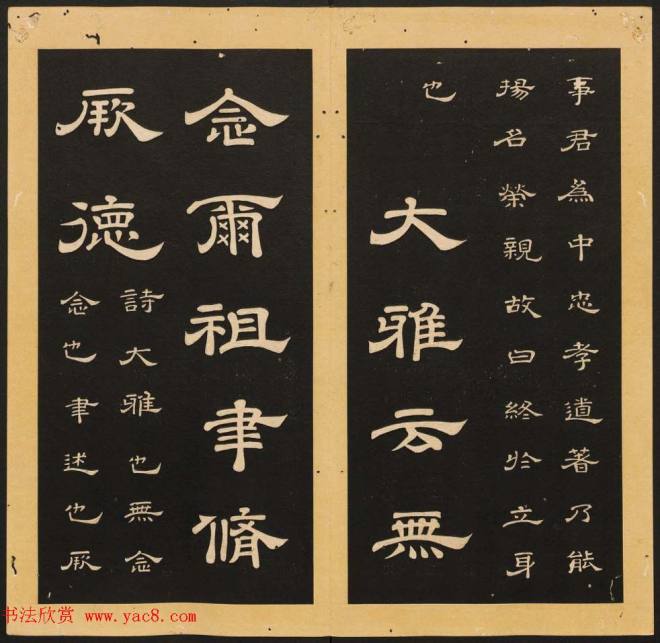 事君為中忠孝道著乃能
揚名榮親故曰終於立身
也
大雅云無
念爾祖聿脩
厥德
詩大雅也無念
念也聿述也厥
书法欣赏 www.yac8.com